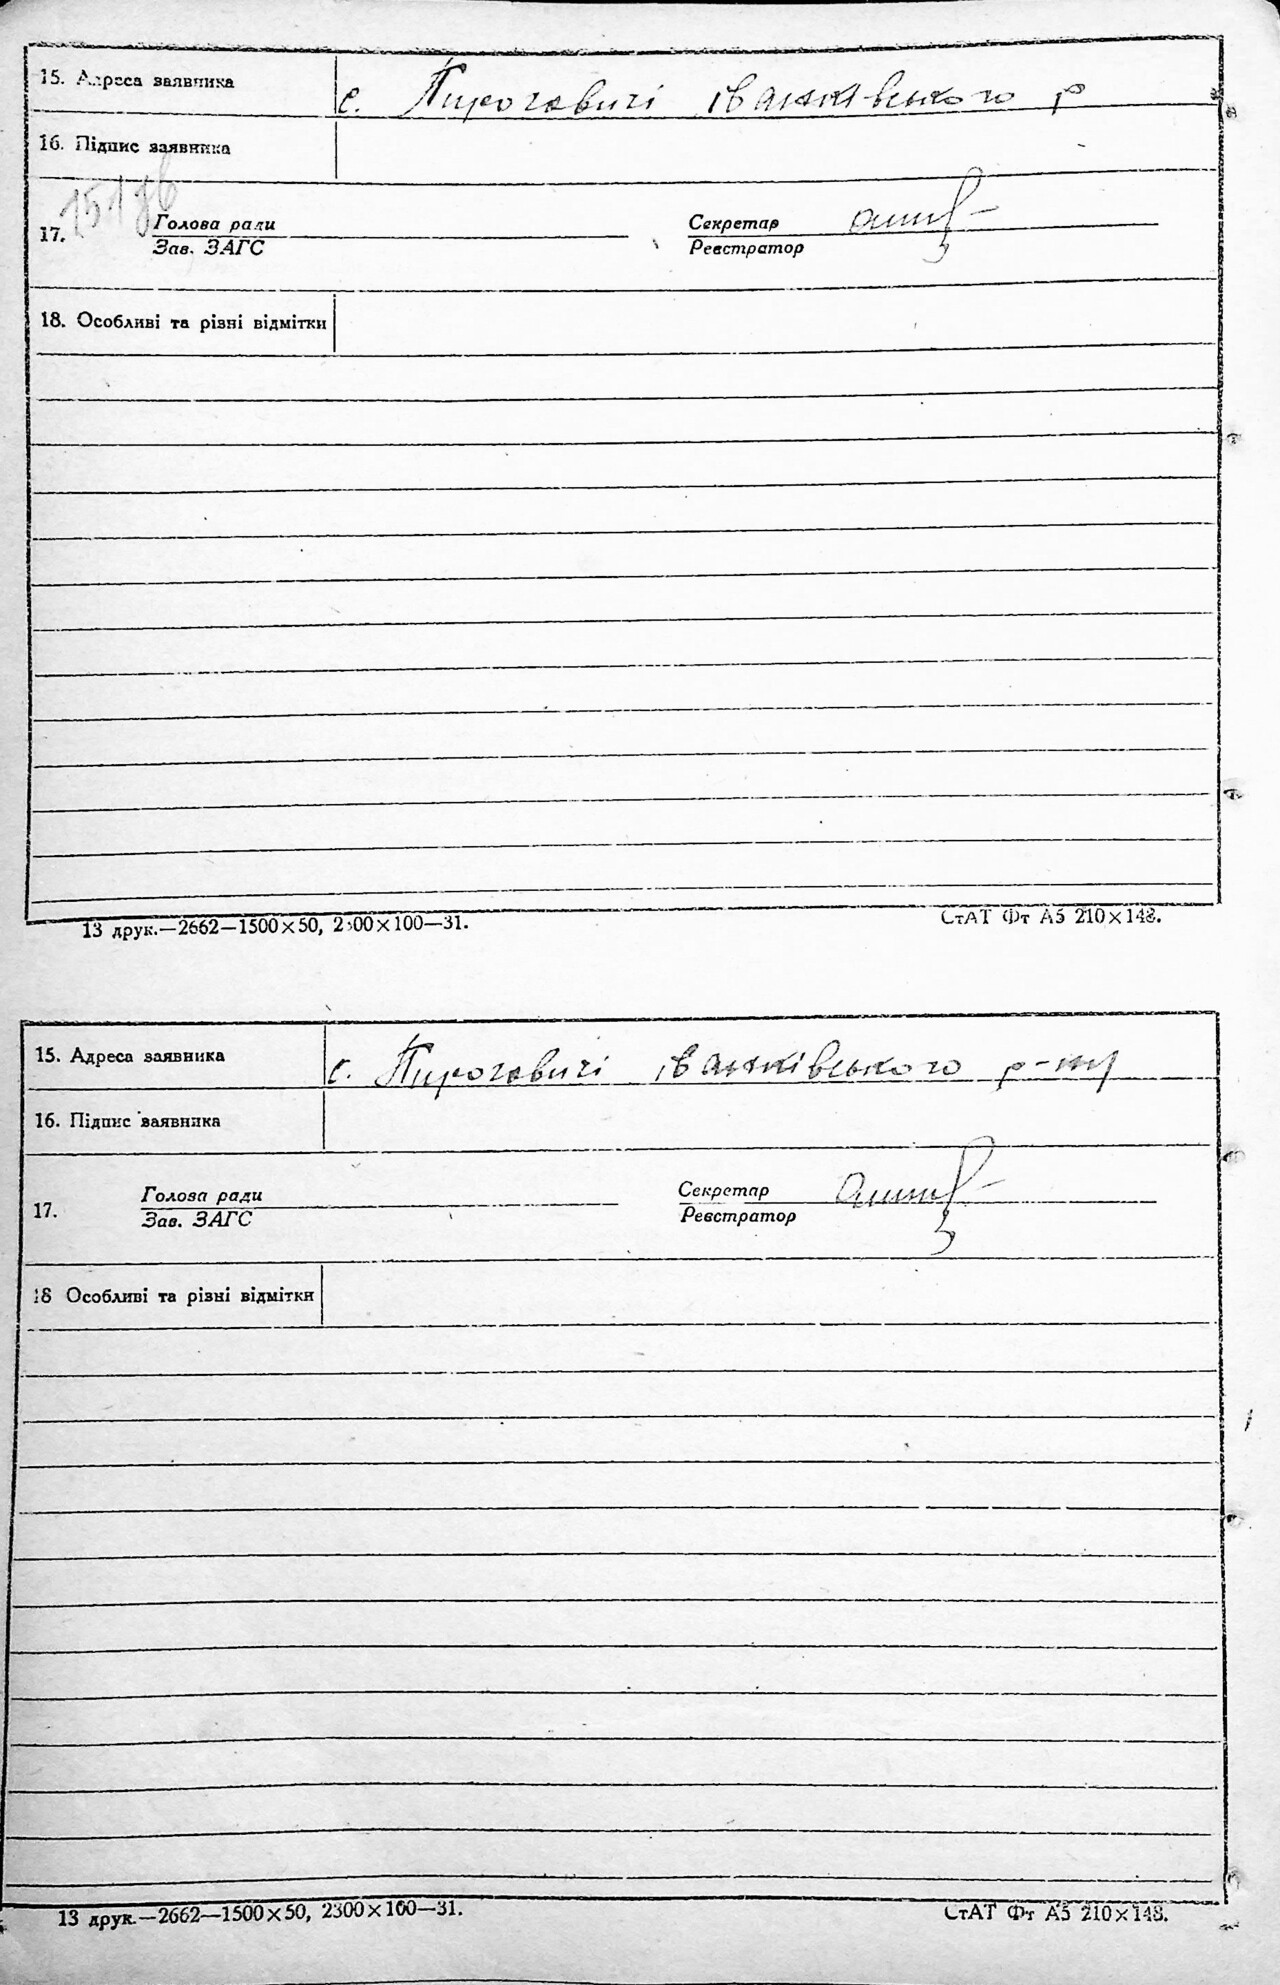 15. Адреса заявника с. Пироговичі іванківського р
16. Підпис заявника
17. Голова ради Секретар
Зав. ЗАГС Реєстратор
18. Особливі та різні відмітки
13 друк.—2662—1500×50, 2300×100—31. СтАТ Фт А5 210×148.
15. Адреса заявника с. Пироговичі іванківського р-ну
16. Підпис заявника
17. Голова ради Секретар
Зав. ЗАГС Реєстратор
18 Особливі та різні відмітки
13 друк.—2662—1500×50, 2300×100—31. СтАТ Фт А5 210×148.